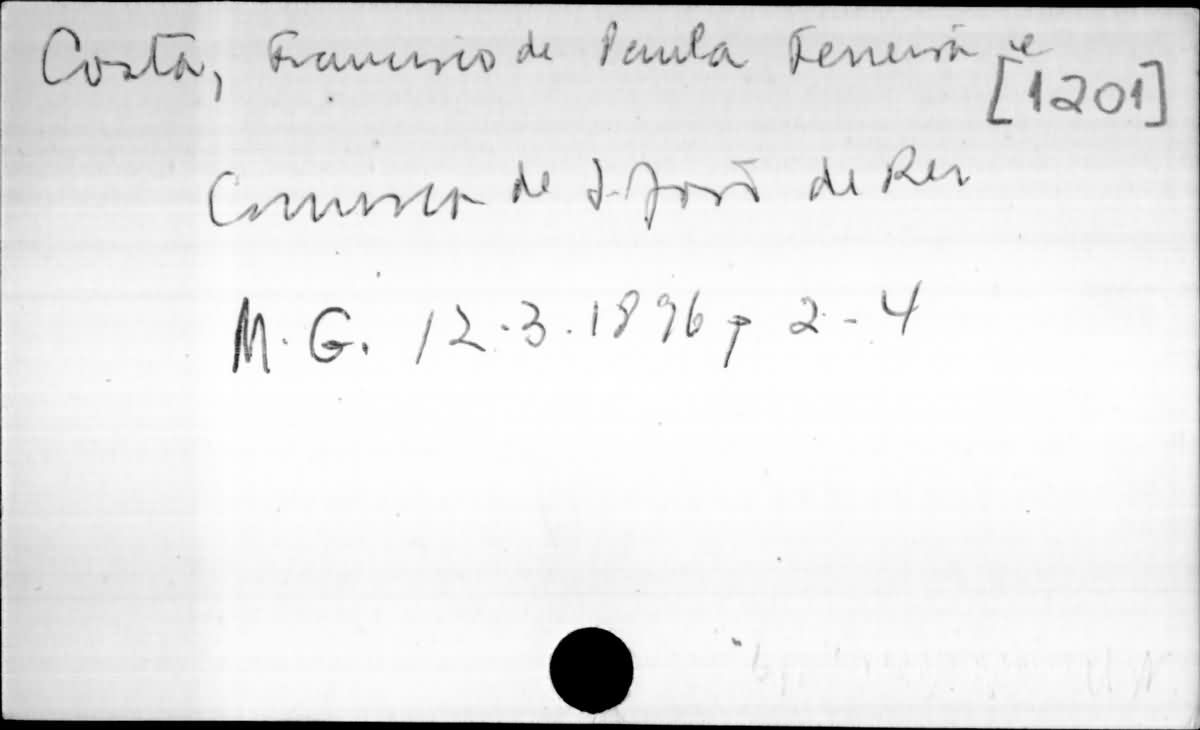 Costa, Francisco de Paula Ferreira e
[1201]
de S. José de Rei
M. G. 12.3.1896 p 2-4